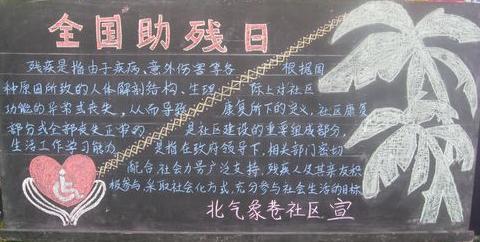 全国助残日
残疾是指由于疾病、意外伤害等各
种原因所致的人体解剖结构、生理
功能的异常或丧失,从而导致
部分或全部丧失正常的
生活工作学习能力
根据国
际上对社区
康复所下的定义,社区康复
是社区建设的重要组成部分,
是指在政府领导下,相关部门密切
配合,社会力量广泛支持,残疾人及其亲友积
极参与,采取社会化方式,充分参与社会生活的目标
北气象巷社区宣